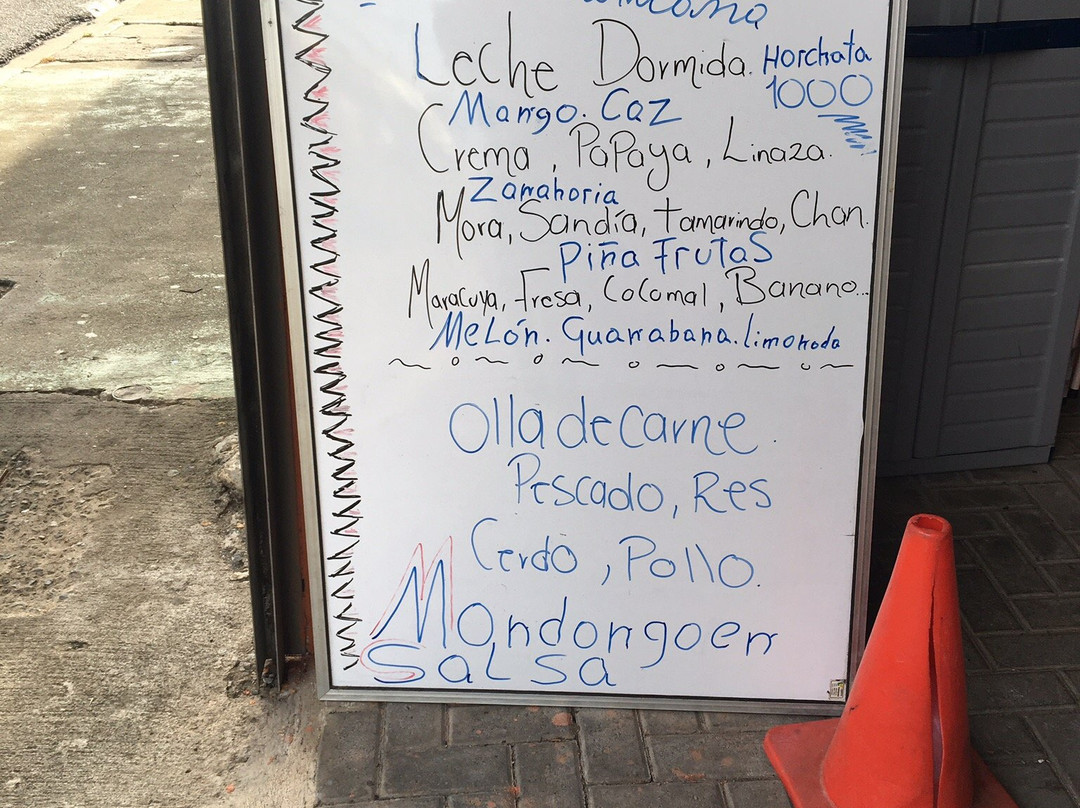 Leche Dormida. Horchata
1000
Mango. Caz
Crema, Papaya, Linaza.
Zanahoria
Mora, Sandía, tamarindo, Chan.
Piña Frutas
Maracuya, Fresa, Colomal, Banano...
Melón. Guanabana. limonada
Olla de Carne.
Pescado, Res
Cerdo, Pollo.
Mondongo en
Salsa